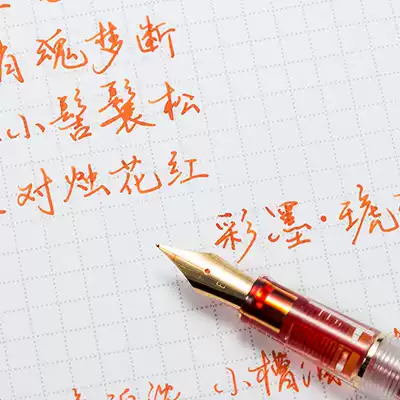 魂梦断
小髻鬟松
对烛花红
彩墨·琥
小槽